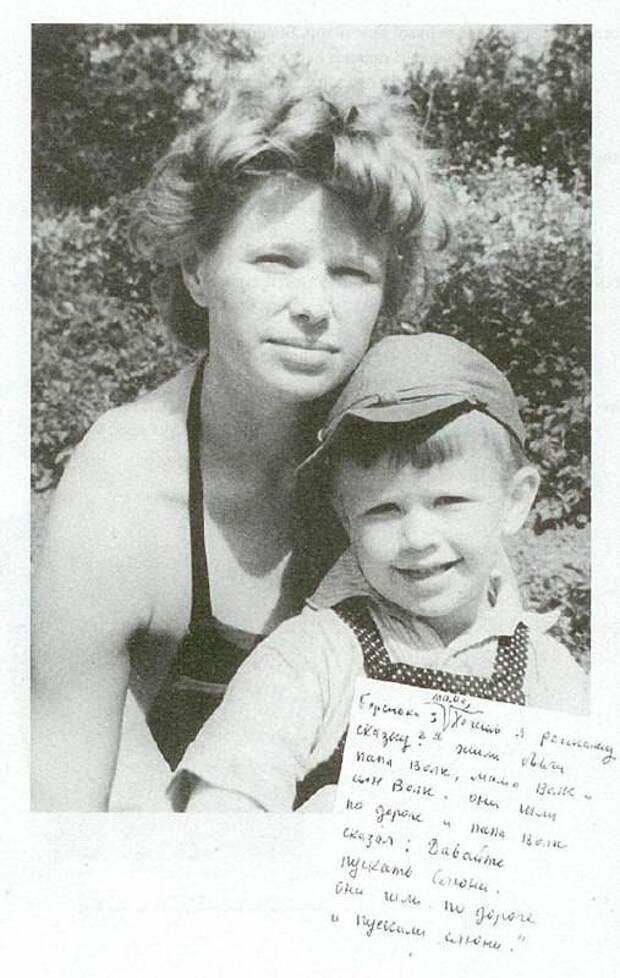 мама,
Борюшка: "Хочешь я расскажу
сказку? Жили были
папа Волк, мама Волк и
сын Волк. Они шли
по дороге и папа Волк
сказал: Давайте
пускать слюни.
Они шли по дороге
и пускали слюни."